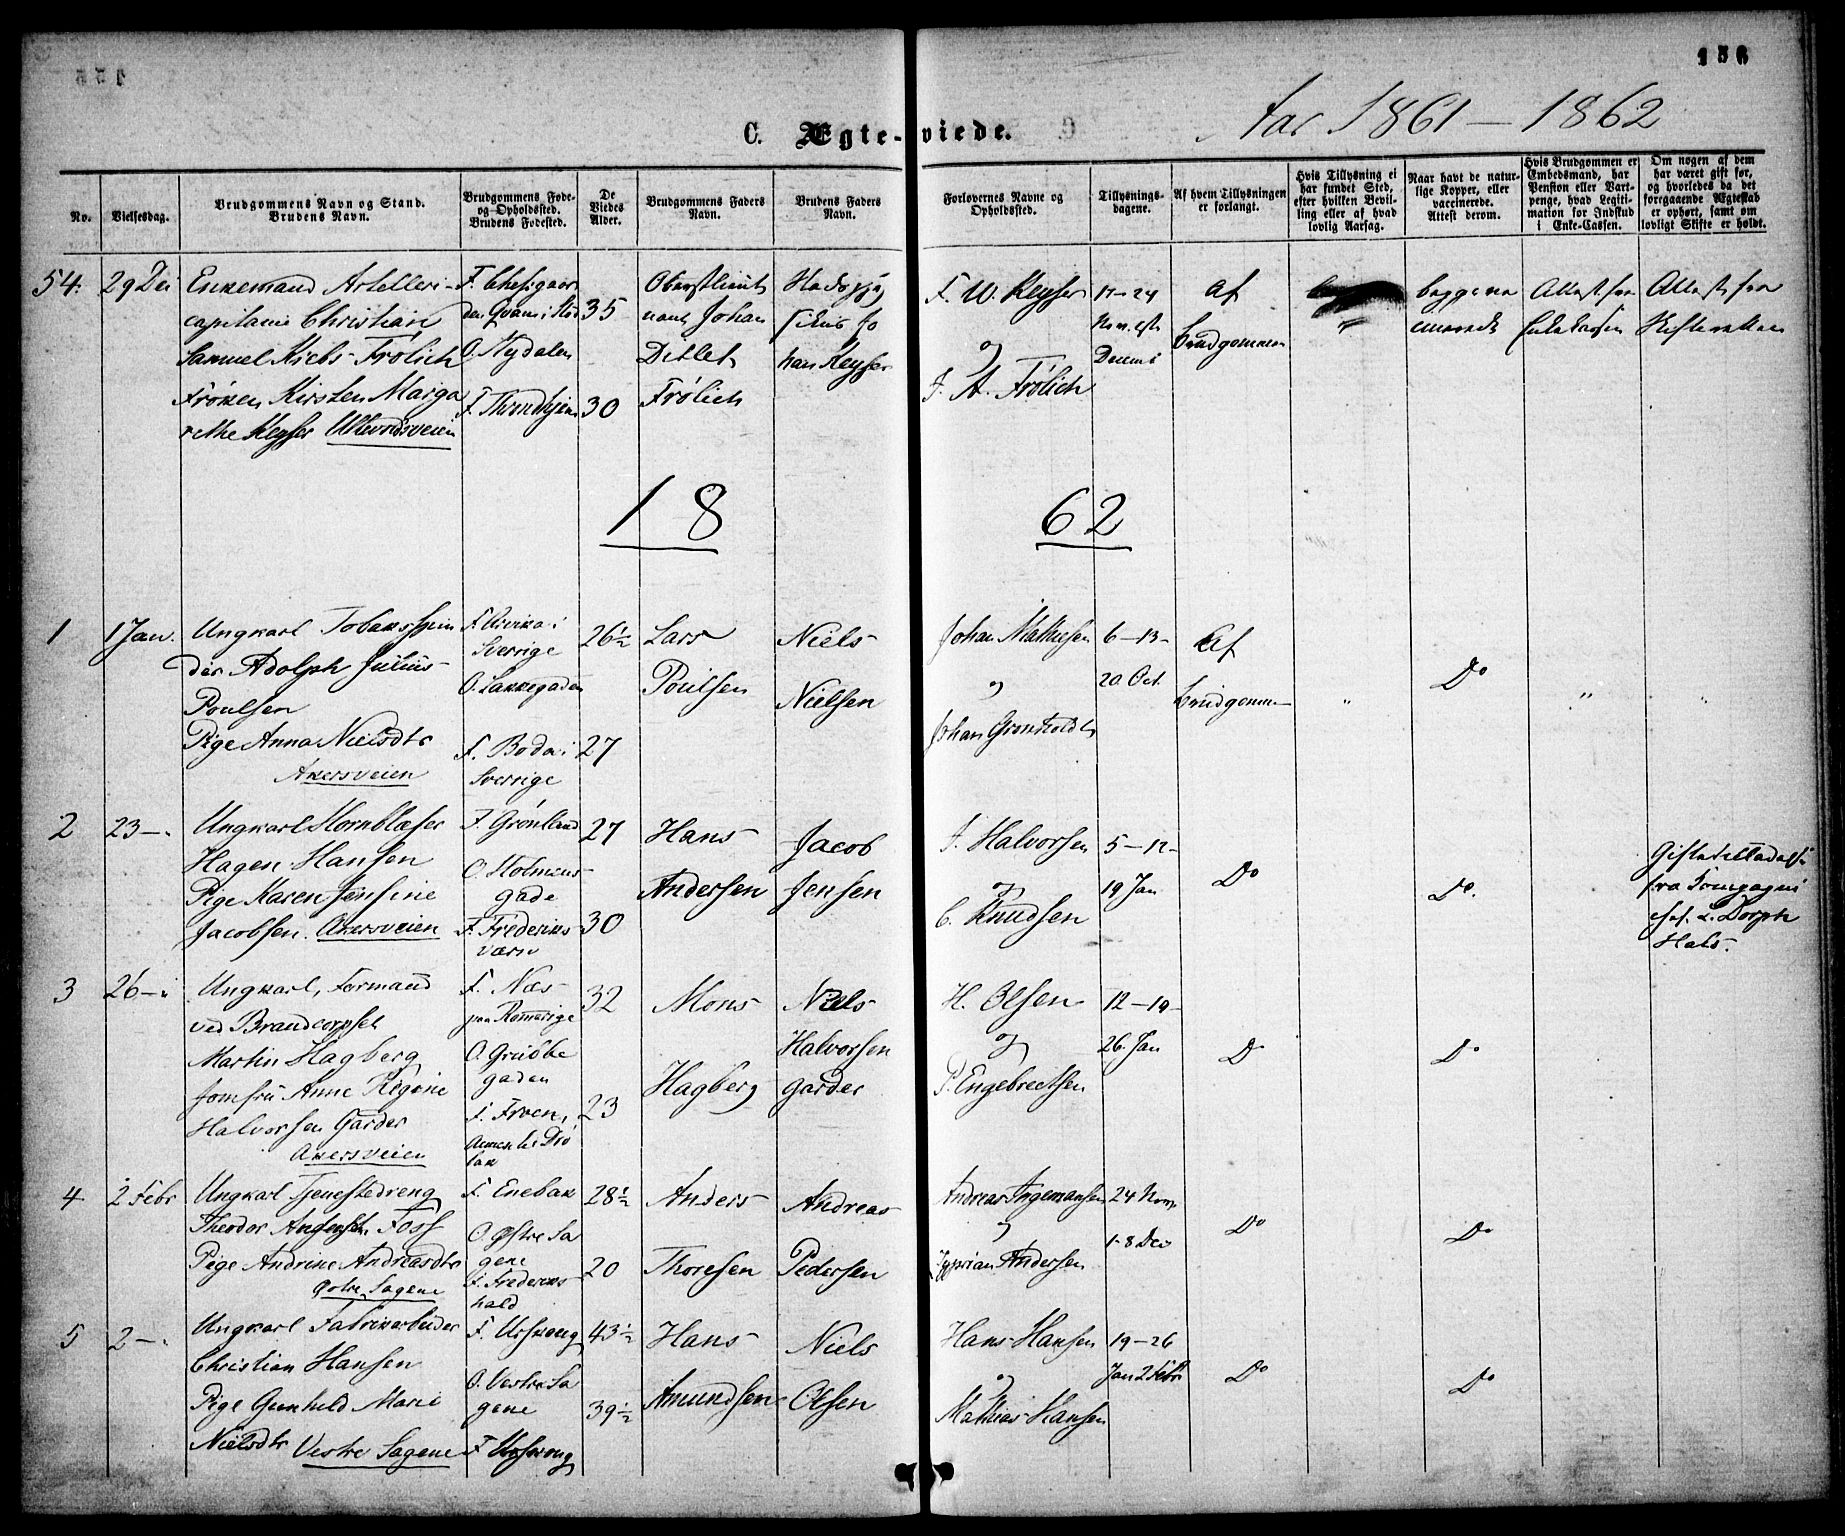 156
C. Ægte-viede.
Aar 1861 — 1862
No.
Vielsesdag.
Brudgommens Navn og Stand.
Brudens Navn.
Brudgommens Føde-
og Opholdssted.
Brudens Fødested.
De
Viedes
Alder.
Brudgommens Faders
Navn.
Brudens Faders
Navn.
Forlovernes Navne og
Opholdssted.
Tillysnings-
dagene.
Af hvem Tillysningen
er forlangt.
Hvis Tillysning ei
har fundet Sted,
efter hvilken Bevil-
ling eller af hvad
lovlig Aarsag.
Naar havt de natur-
lige Kopper, eller
vaccinerede.
Attest derom.
Hvis Brudgommen er
Embedsmand, har
Pension eller Vart-
penge, hvad Legiti-
mation for Indskud
i Enke-Cassen.
Om nogen af dem
har været gift før,
og hvorledes da det
foregaaende Ægteskab
er ophørt, samt om
lovligt Skifte er holdt.
54.
29 Dec
Enkemand Artelleri-
capitaine Christian
Samuel Frölich
Frøken Kirsten Marga
rethe Keyser Ullevoldsveien
O. Nydalen
F. Throndhjem
35
30
Johan
Ditlef
Frölich
Jo
han Keyser
F. W. Keyser
og
F. A. Frölich
17-24
Decemb
Af
Brudgommen
begge va
Attest fra
Attest fra
Skifteretten
18 62
1
1 Jan.
Ungkarl Tobaksspin
der Adolph Julius
Poulsen
Pige Anna Nielsdtr
Akersveien
F. Arvika i
Sverrige
O. Lakkegaden
F. Boda i
Sverrige
26½
27
Lars
Poulsen
Niels
Nielsen
Johan Mathiesen
og
Johan Gronholdt
6-13-
20 Oct.
Af
Brudgommen
"
Do
"
"
2
23-
Ungkarl Hornblæser
Hagen Hansen
Pige Karen Jensine
Jacobsen. Akersveien
F. Grønland
O. Holmens
gade
F. Frederiks
værn
27
30
Hans
Andersen
Jacob
Jensen
J. Halvorsen
og
C. Knudsen
5-12-
19 Jan
Do
Do.
Giftetilladelse
fra Compagni
chef. L. Dorph
Hals.
3
26-
Ungkarl, Formand
ved Brandcorpset
Martin Hagberg
Jomfru Anne Regine
Halvorsen Garder
Akersveien
F. Næs
paa Romerige
O. Grubbe
gaden
F. Froen,
32
23
Mons
Hagberg
Niels
Halvorsen
Garder
H. Olsen
og
P. Engebretsen
12-19-
26. Jan
Do
Do
4
2 Febr
Ungkarl Tjenestedreng
Theodor Foss
Pige Andrine Andreasdtr
Østre Sagene
F. Enebak
O Østre Sa
gene
F. Frederiks
hald
28½
20
Anders
Thoresen
Andreas
Pedersen
Andreas Ingemansen
og
Zyprian Andersen
24 Nov.
1-8 Dec
Do
Do
5
2-
Ungkarl Fabrikarbeider
Christian Hansen
Pige Gunhild Marie
Nielsdtr Vestre Sagene
F. Urskoug
O. Vestre Sa
gene
F Urskoug
43½
39½
Hans
Amundsen
Niels
Olsen
Hans Hansen
og
Mathias Hansen
19-26
Jan 2 Febr
Do
Do